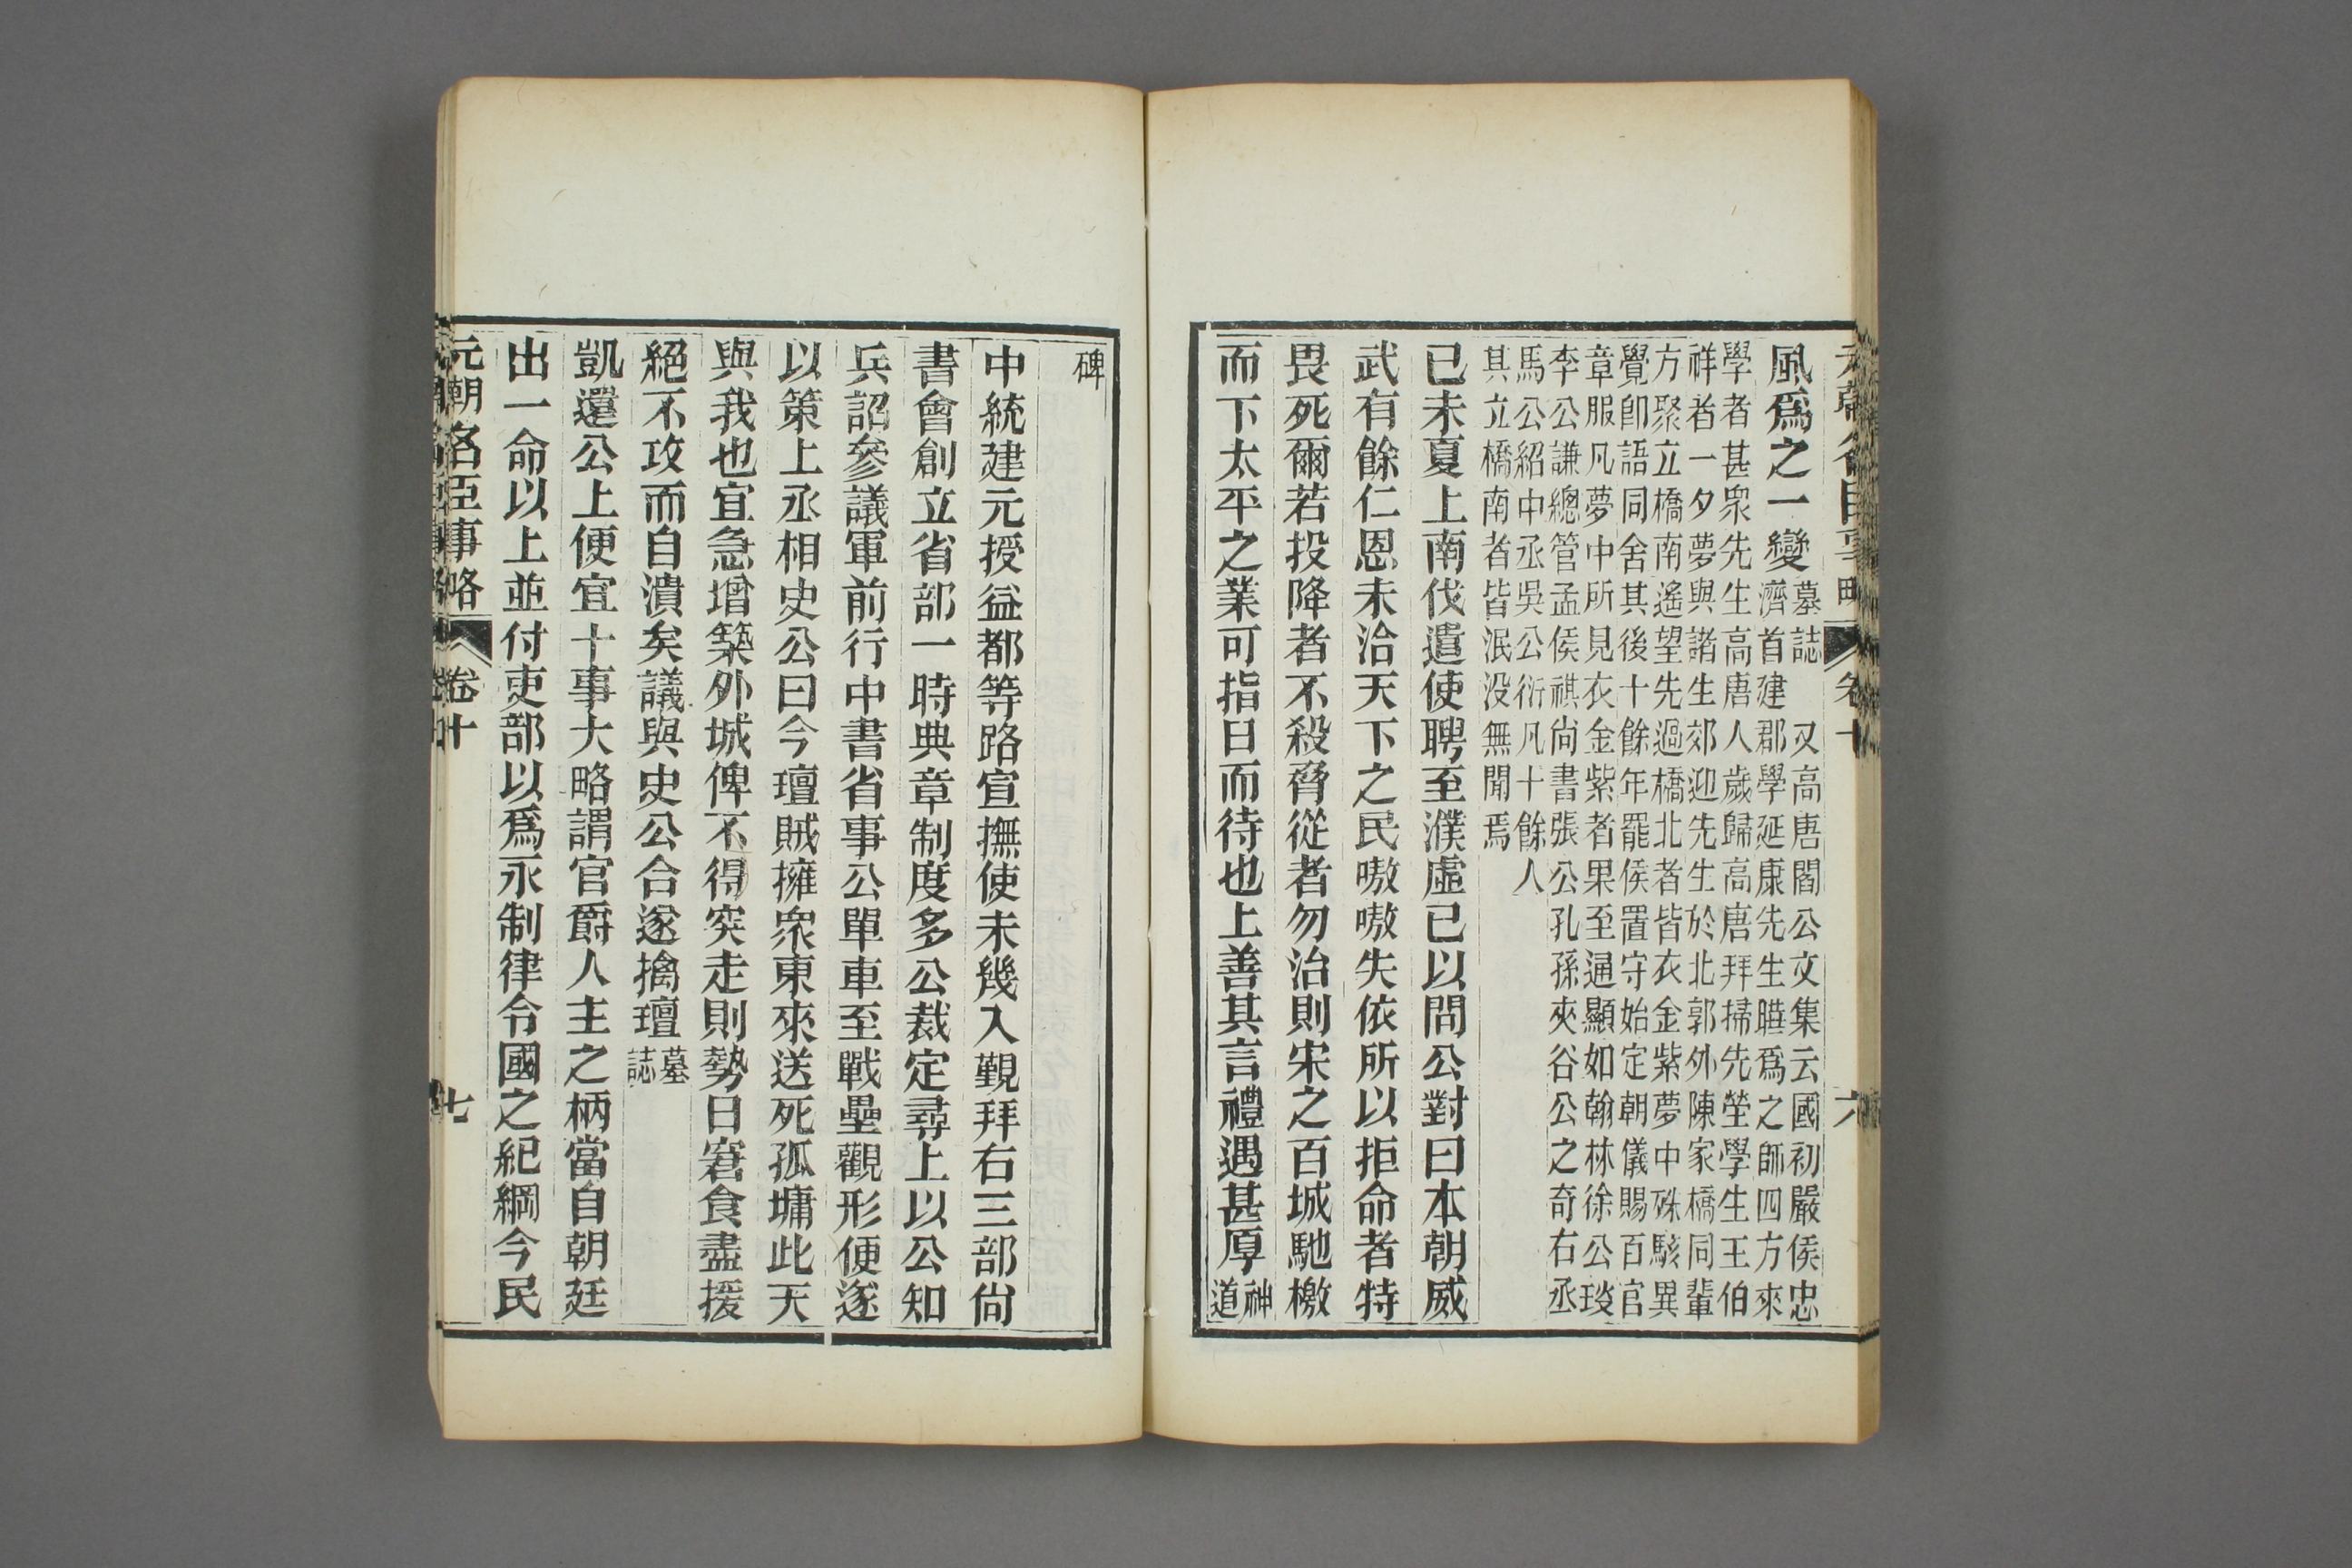 元朝名臣事略 卷十 六
風爲之一變墓誌 又高唐閻公文集云國初嚴侯忠
濟首建郡學延康先生曄爲之師四方來
學者甚衆先生高唐人歲歸高唐拜掃先塋學生王伯
祥者一夕夢與諸生郊迎先生於北郭外陳家橋同輩
方聚立橋南遙望先過橋北者皆衣金紫夢中殊駭異
覺卽語同舍其後十餘年罷侯置守始定朝儀賜百官
章服凡夢中所見衣金紫者果至通顯如翰林徐公琰
李公謙總管孟侯祺尙書張公孔孫夾谷公之奇右丞
馬公紹中丞吳公衍凡十餘人
其立橋南者皆泯没無聞焉
已未夏上南伐遣使聘至濮虛已以問公對曰本朝威
武有餘仁恩未洽天下之民嗷嗷失依所以拒命者特
畏死爾若投降者不殺脅從者勿治則宋之百城馳檄
而下太平之業可指日而待也上善其言禮遇甚厚神道
碑
中統建元授益都等路宣撫使未幾入覲拜右三部尙
書會創立省部一時典章制度多公裁定尋上以公知
兵詔參議軍前行中書省事公單車至戰壘觀形便遂
以策上丞相史公曰今璮賊擁衆東來送死孤墉此天
與我也宜急增築外城俾不得突走則勢日窘食盡援
絕不攻而自潰矣議與史公合遂擒璮墓誌
凱還公上便宜十事大略謂官爵人主之柄當自朝廷
出一命以上並付吏部以爲永制律令國之紀綱今民
元朝名臣事略 卷十 七